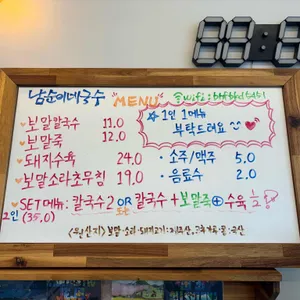 남순이네국수 "MENU" wifi:
보말칼국수 11.0
보말죽 12.0
돼지수육 24.0
보말소라초무침 19.0
☆1인 1메뉴
부탁드려요
· 소주/맥주 5.0
· 음료수 2.0
SET메뉴: 칼국수2 OR 칼국수+보말죽+수육
2인 (35.0)
<원산지> 보말·소라·돼지고기: